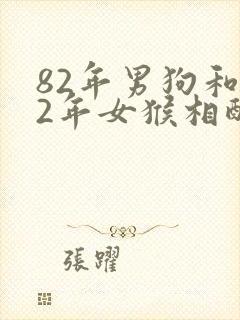 82年男狗和
2年女猴相配
張躍